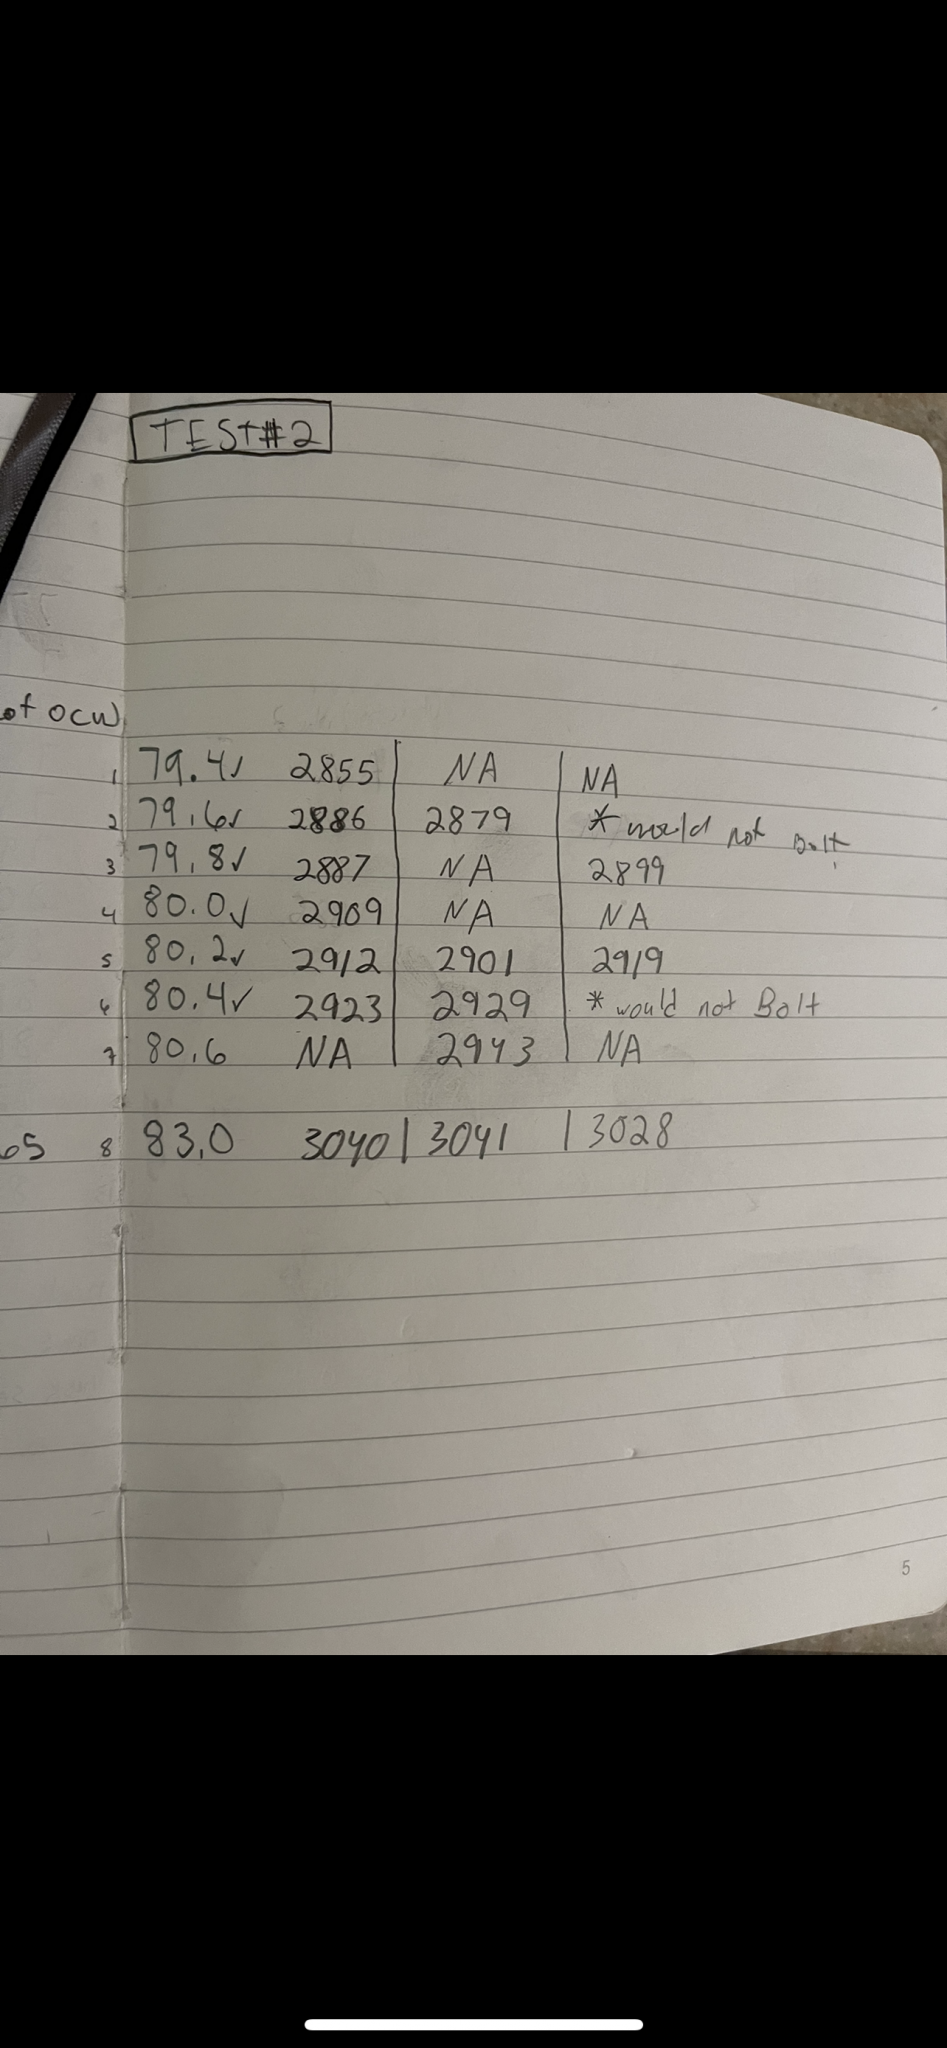 TEST#2
of OCW
1 79.4✓ 2855 | NA | NA
2 79.6✓ 2886 2879 * would not Bolt
3 79.8✓ 2887 NA 2899
4 80.0✓ 2909 NA NA
5 80.2✓ 2912 2901 2919
6 80.4✓ 2923 2929 * would not Bolt
7 80.6 NA 2943 | NA
8 83.0 3040 | 3041 | 3028
5